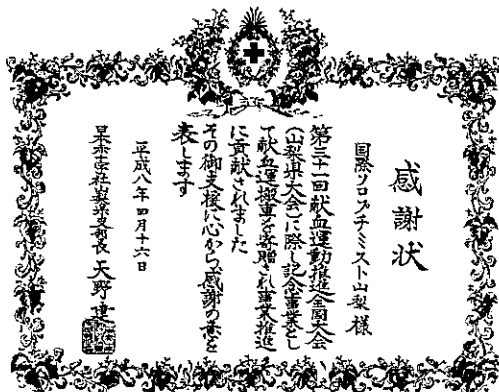 感謝状
国際ソロプチミスト山梨 様
第三十一回献血運動推進全国大会
(山梨県大会)に際し記念事業とし
て献血運搬車を寄贈され事業推進
に貢献されました
その御支援に心から感謝の意を
表します
平成八年四月十六日
日本赤十字社山梨県支部長 天野建